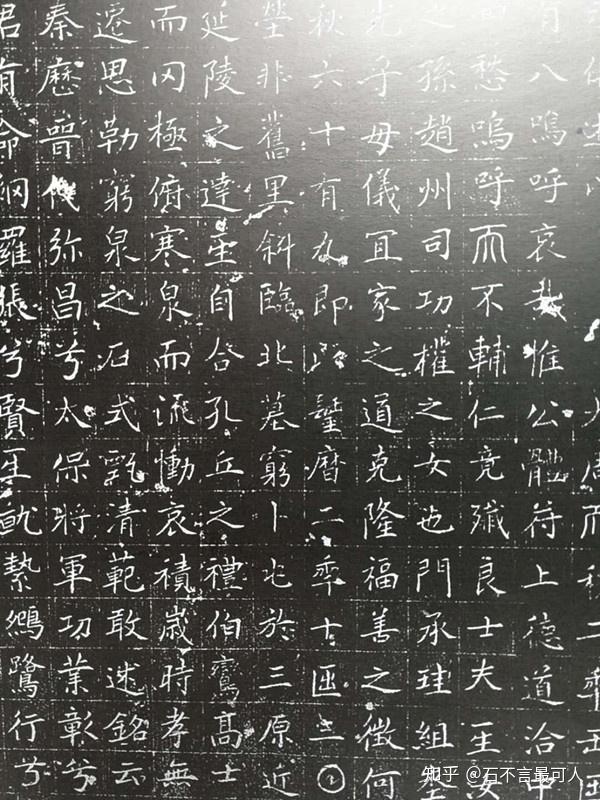 有八嗚呼哀哉惟公體苻上德道洽中
四愁嗚呼而不輔仁竟殲良士夫𤯔
之孫趙州司功權之女也門承珪組
子母儀宜家之道克隆福善之徵何
秋六十有九即以𨲢曆二𠡦十𠥱三𡆠
塋非舊里斜臨北墓窮卜兆於三原近
延陵之達𤯔自合孔丘之禮伯鸞高士
而罔極俯寒泉而流慟哀積歲時孝無
遷思勒窮泉之石式甄清範敢述銘云
秦歷晉代弥昌兮太保將軍功業彰兮
君有命網羅張兮賢𤯔就縶鵷鷺行兮
知乎 @石不言最可人